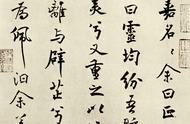 嘉名〻余曰正
曰靈均紛吾
美兮又重之以
離与辟芷兮
為佩汩余若